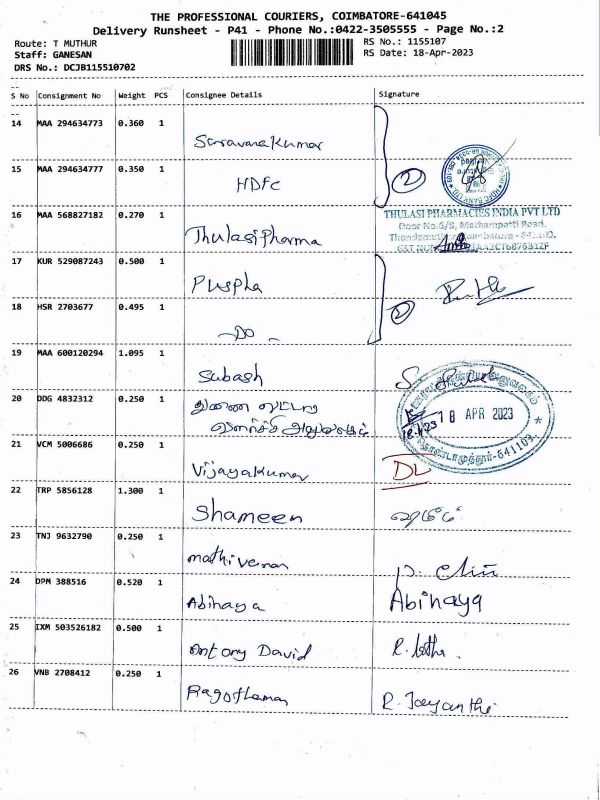 THE PROFESSIONAL COURIERS, COIMBATORE-641045
Delivery Runsheet - P41 - Phone No.:0422-3505555 - Page No.:2
Route: T MUTHUR
RS No.: 1155107
Staff: GANESAN
RS Date: 18-Apr-2023
DRS No.: DCJB115510702
S No Consignment No Weight PCS Consignee Details Signature
14 MAA 294634773 0.360 1
Saravanakumar
15 MAA 294634777 0.350 1
HDFC
2
16 MAA 568827182 0.270 1
Thulasipharma
THULASI PHARMACIES INDIA PVT LTD
Door No.6/8, Mathampatti Road,
17 KUR 529087243 0.500 1
Puspha
18 HSR 2703677 0.495 1
-DO-
2
19 MAA 600120294 1.095 1
Subash
20 DDG 4832312 0.250 1
துணை வட்டார
வளர்ச்சி அலுவலகம்
18 APR 2023
21 VCM 5006686 0.250 1
Vijayakumar
DL
22 TRP 5856128 1.300 1
Shameen
23 TNJ 9632790 0.250 1
mathivanan
24 DPM 388516 0.520 1
Abinaya
Abinaya
25 IXM 503526182 0.500 1
Antony David
26 VNB 2708412 0.250 1
Ragothaman
R. Jayanthi